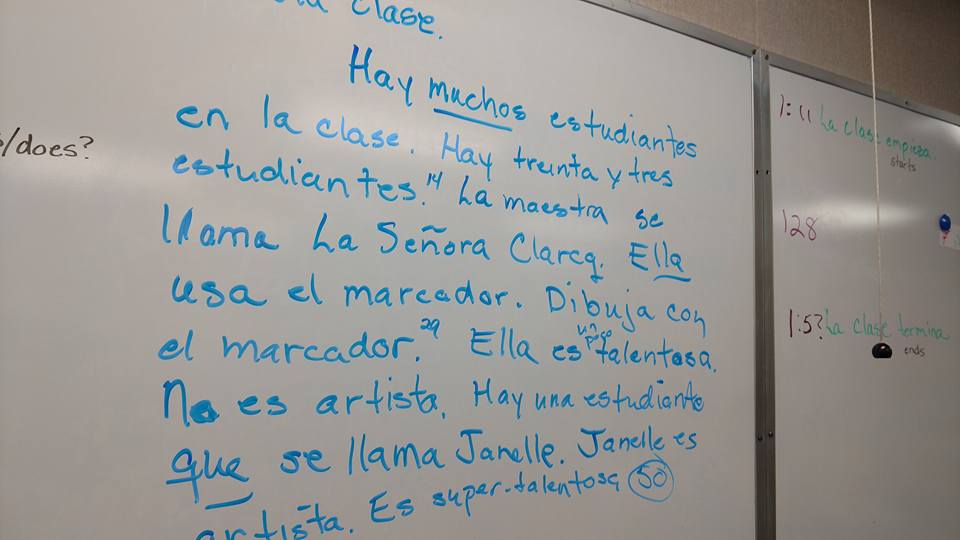 clase.
Hay muchos estudiantes
en la clase. Hay treinta y tres
estudiantes.14 La maestra se
llama La Señora Clarcq. Ella
usa el marcador. Dibuja con
el marcador.29 Ella es un poco talentosa.
No es artista. Hay una estudiante
que se llama Janelle. Janelle es
artista. Es super-talentosa 50
/does?
1:11 La clase empieza.
starts
128
1:5? La clase termina
ends